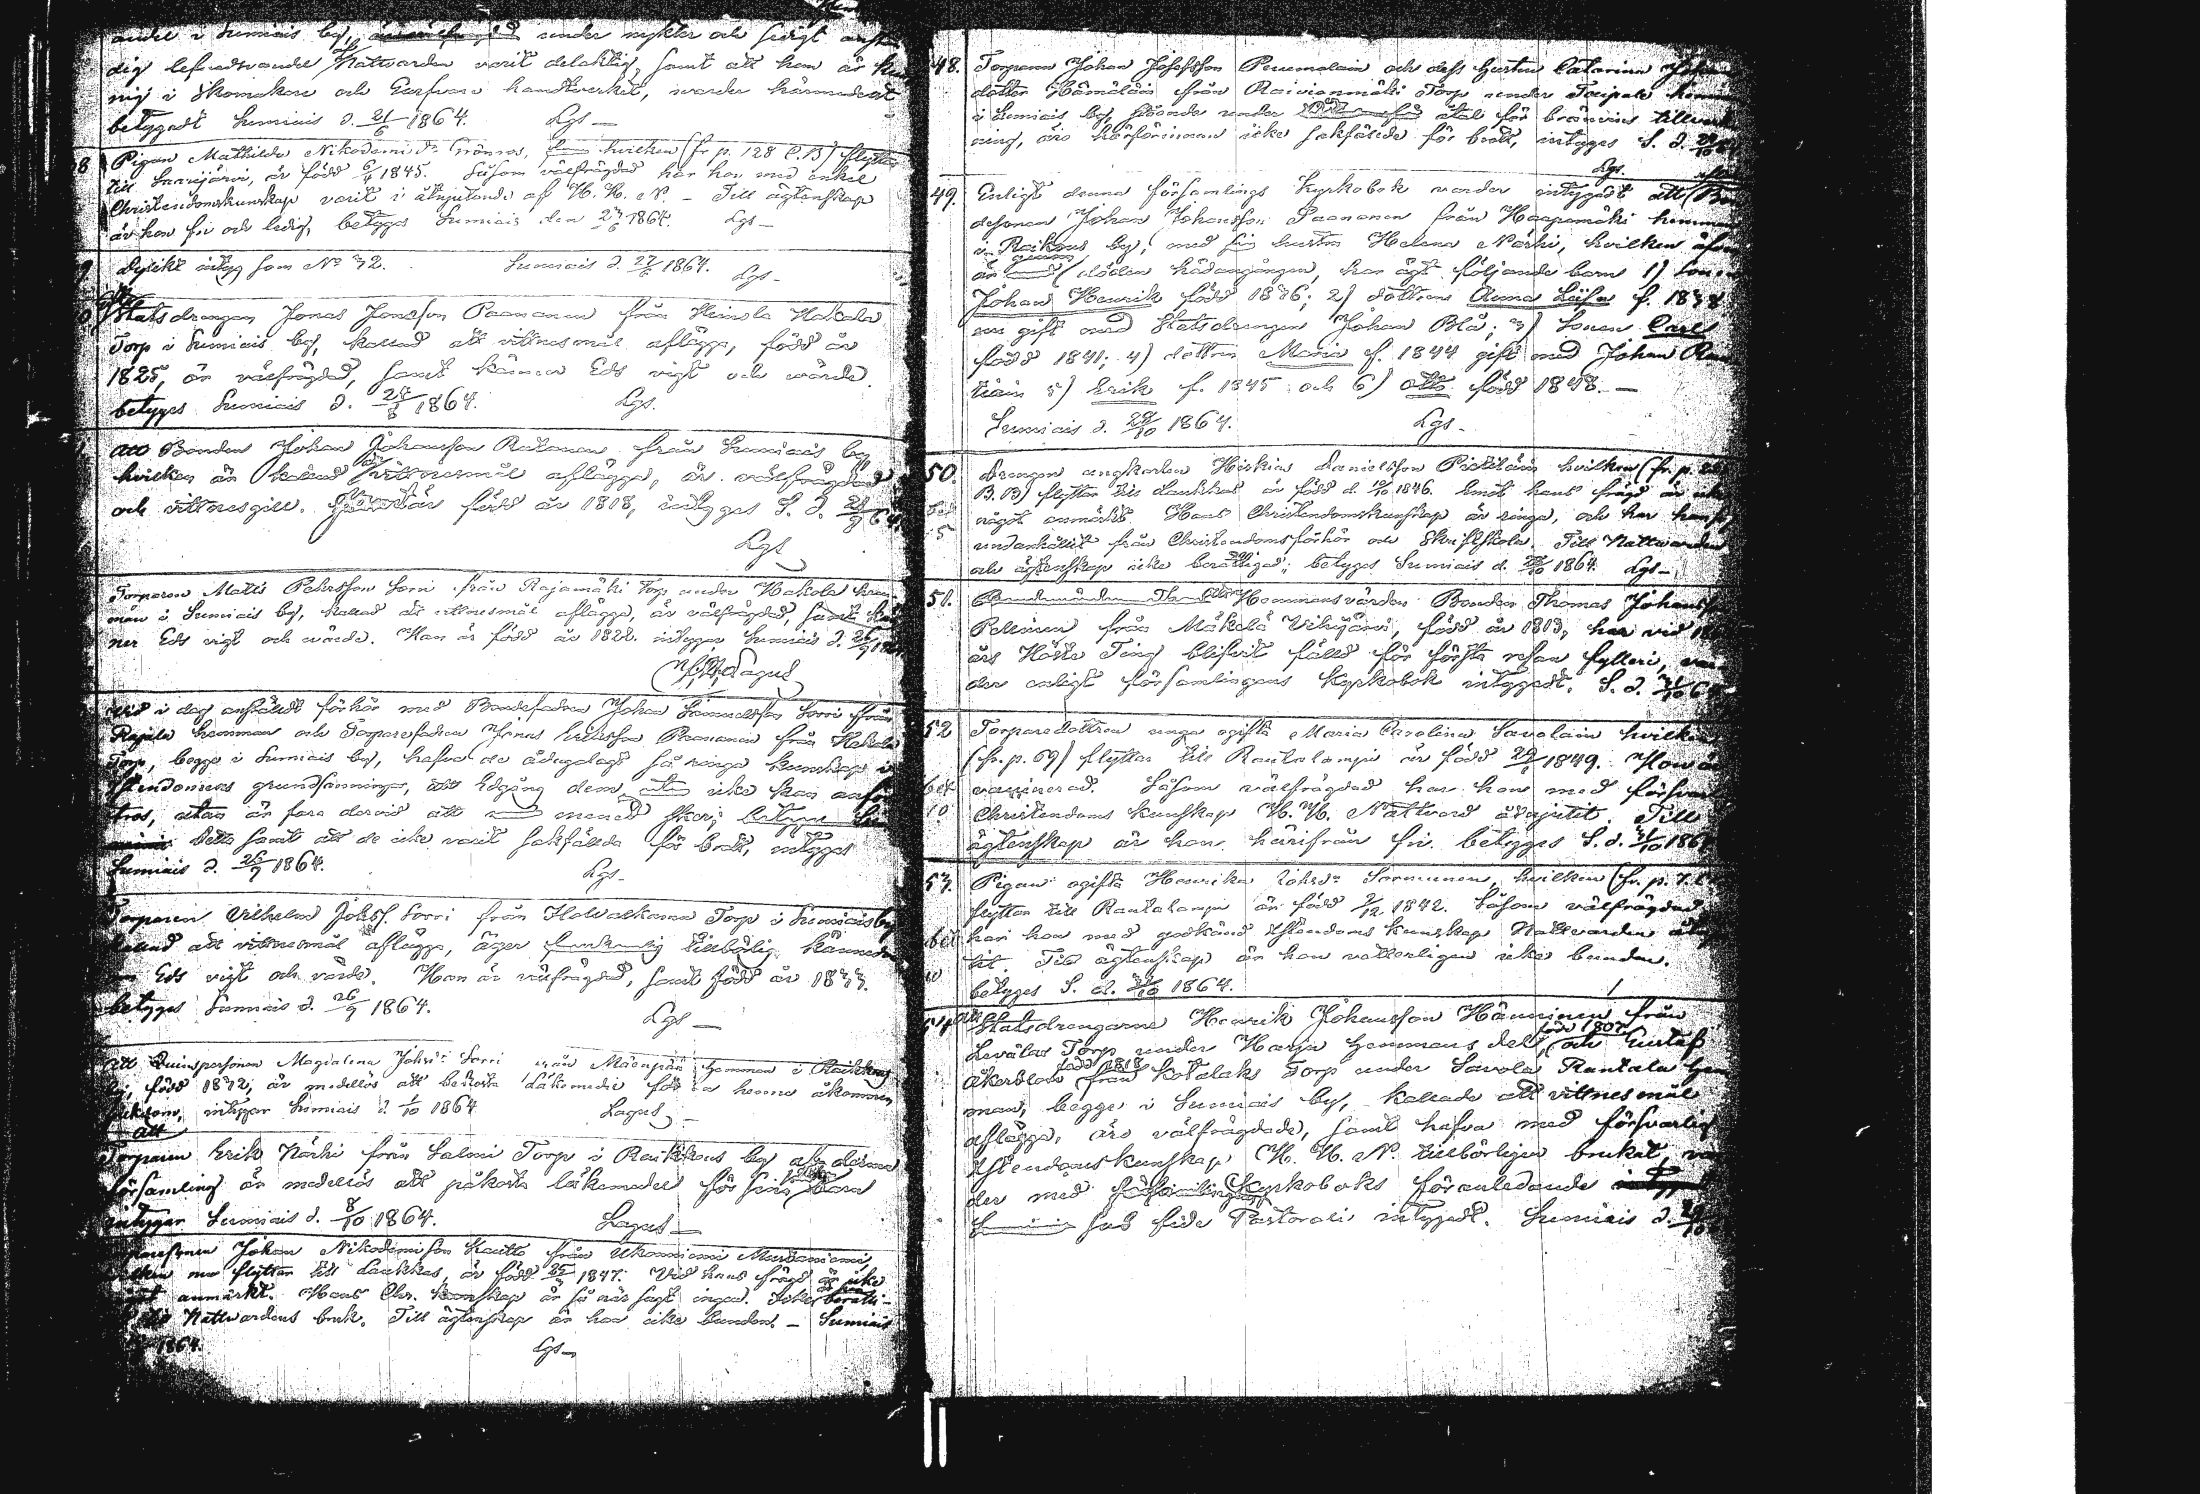 andel i Sumiais by, under nykter och sedigt anstän
dig lefnadsvandel Nattvarden varit delaktig, samt att han är kun
nig i Skomakare och Garfvare handtverket, warder härmedelst
betygadt Sumiais d. 21/6 1864. Lgs
8 Pigan Mathilda Nikodemi dr Grönroos, hvilken (fr p. 128 C.B) flyttar
till Saarijärvi, är född 6/4 1845. Såsom välfrägdad har hon med enkel
Christendomskunskap varit i åtnjutande af H. H. N. - Till ägtenskap
är hon fri och ledig, betygas Sumiais den 27/6 1864. Lgs
9 Dylikt intyg som No 32. Sumiais d. 27/6 1864. Lgs
Statsdrengen Jonas Jonsson Paananen från Heinola Hakala
Torp i Sumiais by, kallad att vittnesmål aflägga, född år
1825, är välfrägdad, samt känner Eds vigt och värde
betygas Sumiais d. 28/8 1864. Lgs.
att Bonden Johan Johansson Rutanen från Sumiais by
hvilken är kallad att vittnesmål aflägga, är välfrägdad
och vittnesgill. är född år 1818, intygas S. d. 24/9 64
Lgs
Torparen Matts Pehrsson Sorri från Rajamäki Torp under Hakola hem
man i Sumiais by, kallad att vittnesmål aflägga, är välfrägdad, samt kän
ner Eds vigt och wärde. Han är född år 1822. intygar Sumiais d. 26/9 1864
Lagus
Vid i dag anstäldt förhör med Bondefadren Johan Samuelsson Sorri från
Rajala hemman och Torparefadren Jonas Eriksson Paananen från Hakala
Torp, begge i Sumiais by, hafva de ådagalagt så ringa kunskap i
Xstendomens grundsanningar, att Edgång dem icke kan anför
tros, utan är fara dervid att mened sker;
Detta samt att de icke varit sakfällda för brott, intygas
Sumiais d. 26/9 1864. Lgs
Torparen Vilhelm Johss. Sorri från Howatkanen Torp i Sumiais by
kallad att vittnesmål aflägga, äger tillbörlig kännedom
om Eds vigt och värde. Han är välfrägdad, samt född år 1833.
betygas Sumiais d. 26/9 1864. Lgs
att Qvinspersonen Magdalena Johsdr Sorri från Mäenpää hemman i Raikkous
by, född 1832, är medellös att bekosta läkemedel för en henne åkommen
sjukdom, intygar Sumiais d. 1/10 1864 Lagus
att
Torparen Erik Närhi från Salmi Torp i Raikkous by af denna
församling är medellös att påkosta läkemedel för sin
intygar Sumiais d. 8/10 1864. Lagus
Johan Nikodemisson Kautto från Ukonniemi
hvilken nu flyttar till Laukkas, är född 25/ 1847. Vid hans frägd är icke
något anmärkt. Hans Chr. kunskap är så när sagt ingen. Icke berätti-
Nattvardens bruk. Till ägtenskap är han icke bunden. - Sumiais
1864. Lgs
48. Torparen Johan Josefsson Penmalain och dess hustru Catarina Johans
dotter Hämäläin från Raivionmäki Torp under Taipale hemman
i Sumiais by, stående under åtal för brännvins tillverk
ning, äro härförinnan icke sakfällde för brott, intygas S. d. 22/10
Lgs.
49. Enligt denna församlings Kyrkobok warder intygadt att
desonen Johan Johansson Paananen från Haapamäki hemman
i Raikous by, med sin hustru Helena Närhi, hvilken äfven
är genom döden hädangången, har ägt följande barn 1) Sonen
Johan Henrik född 1836; 2) dottren Anna Lisa f. 1838
nu gift med Statsdrengen Johan Blå; 3) Sonen Carl
född 1841; 4) dottren Maria f. 1844 gift med Johan Ran
tiain 5) Erik f. 1845 och 6) Otto född 1848.
Sumiais d. 29/10 1864. Lgs
50. Drengen ungkarlen Hiskias Danielsson Pietiläin hvilken (fr. p.
B. B) flyttar till Laukkas är född d. 12/10 1846. Emot hans frägd är icke
något anmärkt. Hans Christendomskunskap är ringa, och har han
undanhållit från Christendomsförhör och Skriftskola. Till Nattvarden
och ägtenskap icke berättigad; betygas Sumiais d. 30/10 1864 Lgs
51. Hemmansvärden Bonden Thomas Johansson
Pellinen från Mäkelä Vihijärvi, född år 1813, har vid
års Höste Ting blifvit fälld för första resan fylleri, war
der enligt församlingens Kyrkobok intygadt. S. d. 31/10 64
52 Torparedottren unga ogifta Maria Carolina Savolain hvilken
(fr. p. 69) flyttar till Rautalampi är född 29/ 1849. Hon är
bet vaccinerad. Såsom välfrägdad har hon med försvarlig
10 Christendoms kunskap H. H. Nattvard åtnjutit. Till
ägtenskap är hon härifrån fri. betygas S. d. 31/10 1864
53. Pigan ogifta Henrika Johsdr Sormunen, hvilken (fr. p. 7.
flyttar till Rautalampi är född 2/12 1842. Såsom välfrägdad
bet har hon med godkänd Xstendoms kunskap Nattvarden åtnju
10 tit. Till ägtenskap är hon vetterligen icke bunden.
betygas S. d. 31/10 1864.
54 att Statsdrengarne Henrik Johansson Hänninen från
Levälas Torp under Harju hemmans del, född 1807 och Gustaf
Åkerblom född 1818 från Kotalaks Torp under Savola Rantala hem
man, begge i Sumiais by, kallade att vittnesmål
aflägga, äro välfrägdade, samt hafva med försvarlig
Xstendomskunskap H. H. N. tillbörligen brukat, war
der med Kyrkoboks föranledande
sub fide Pastorali intygadt. Sumiais d. 29/10